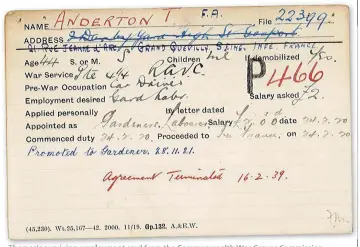 NAME ANDERTON T F.A. File 22399
ADDRESS 2 Denby Yard High St Gosport
21 Rue Jeanne d'Arc, GRAND QUEVILLY, S. INF. FRANCE
Age 44 S. or M. S Children nil If demobilized Yes.
War Service The 4/4 RAVC. P466
Pre-War Occupation Car Driver
Employment desired Gard Labr. Salary asked £2
Applied personally By letter dated
Appointed as Gardener Labourer Salary £2.00 date 24.2.20
Commenced duty 24.2.20. Proceeded to France, on 24.2.20
Promoted to Gardener. 28.11.21.
Agreement Terminated 16-2-39.
(45,230) Wt.25,167—42. 2000. 11/19. Gp.132. A.&R.W.